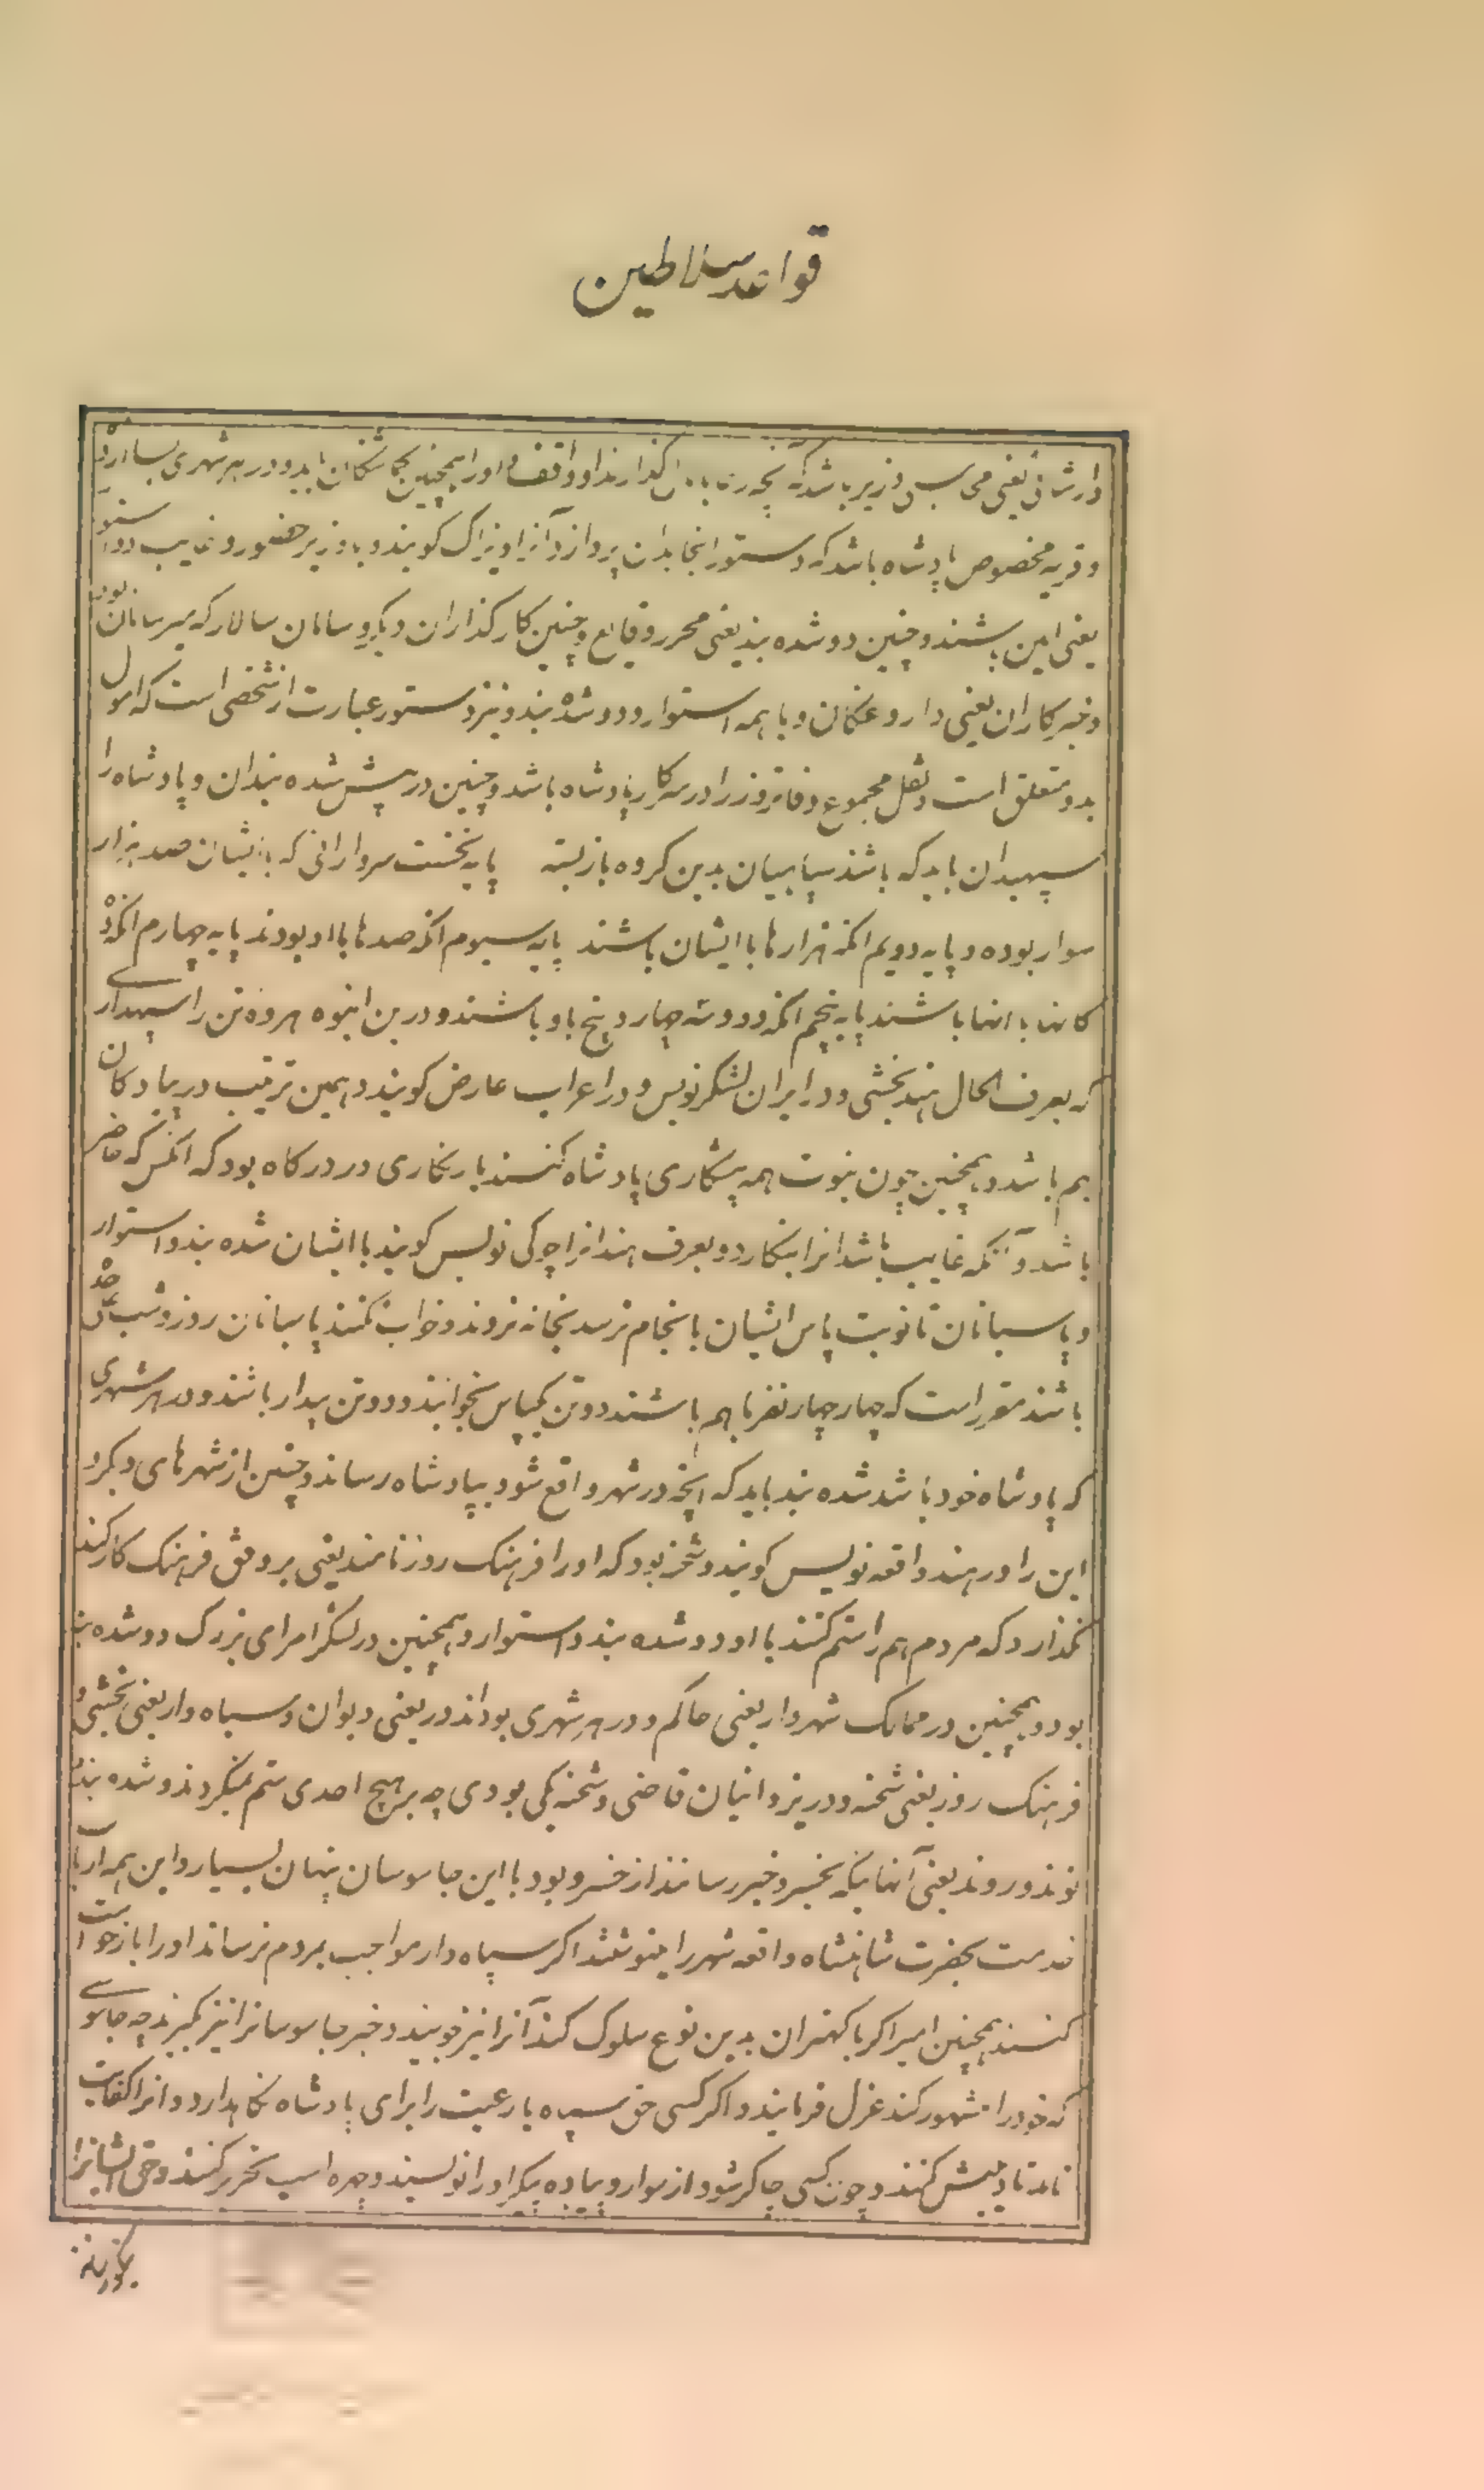 قواعد سلاطین
وارشانی یعنی وزیر باشد که و در هر شهری بسا
و قریه مخصوص پادشاه باشد که دستور انجا بدان پردازد آنرا ویزاک کویند و با وزیر حضور و غایب دو استوار
یعنی امین باشند و چنین دو شده بند یعنی محرر وقایع و چنین کارکذاران دیکر و سامان سالار که میر سامان بود
و خبرکاران یعنی داروغکان و با همه استوار و دو شده بند و نیز دستور عبارت از شخصی است که اموال
بدو متعلق است و نقل مجموع دفاتر وزرا در سرکار پادشاه باشد و چنین در پیش شده بندان و پادشاه را
سپهبدان باید که باشند سپاهیان بدین کروه بازبسته پایه نخست سردارانی که با ایشان صد هزار
سوار بوده و پایه دویم انکه هزارها با ایشان باشند پایه سیوم انکه صدها با او بودند پایه چهارم انکه ده
کانها با انها باشند پایه پنجم انکه دو و سه چهار و پنج با و باشند و درین انبوه هر ده تن را سپهداری
که بعرف الحال هند بخشی و در ایران لشکرنویس و در اعراب عارض کویند و همین ترتیب در پیادکان
هم باشد و همچنین چون بنوبت همه پیشکاری پادشاه کنند بارنکاری در درکاه بود که انکس که حاضر
باشد و آنکه غایب باشد انرا بنکارد و بعرف هند انرا چوکی نویس کویند با ایشان شده بند و استوار
و پاسبانان تا نوبت پاس ایشان بانجام نرسد بخانه نروند و خواب نکنند پاسبانان روز و شب
باشند مقرر است که چهار چهار نفر باهم باشند دو تن یکپاس بخوابند و دو تن بیدار باشند و در هر شهری
که پادشاه خود باشد شده بند باید که آنچه در شهر واقع شود بپادشاه رساند و چنین از شهرهای دیکر و
این را در هند واقعه نویس کویند و شحنه بود که او را فرهنک روز نامند یعنی بر وفق فرهنک کار کند
نکذارد که مردم هم را ستم کنند با او دو شده بند و استوار و همچنین در لشکر امرای بزرک دو شده بند
بود و همچنین در ممالک شهردار یعنی حاکم و در هر شهری بود اندور یعنی دیوان و سپاه دار یعنی بخشی و
فرهنک روز یعنی شحنه و در یزدانیان قاضی و شحنه یکی بودی چه بر هیچ احدی ستم نمیکردند و شده بند
نوند و روند یعنی آنهاییکه بخسرو خبر رسانند از خسرو بود با این جاسوسان پنهان بسیار و این همه ارباب
خدمت بحضرت شاهنشاه واقعه شهر را مینوشتند اکر سپاه دار مواجب بمردم نرساند او را بازخواست
کنند همچنین امیر اکر با کهتران بدین نوع سلوک کند آنرا نیز خوبیند و خبر جاسوسانرا نیز کیرند چه جاسوسی
که خود را مشهور کند عزل فرمایند و اکر کسی حق سپاه یا رعیت را برای پادشاه نکاهدارد و انرا کفایت
نامد تادیبش کنند و چون کسی چاکر شود از سوار و پیاده پیکر او را نویسند و چهره اسپ تحریر کنند و حق ایشانرا